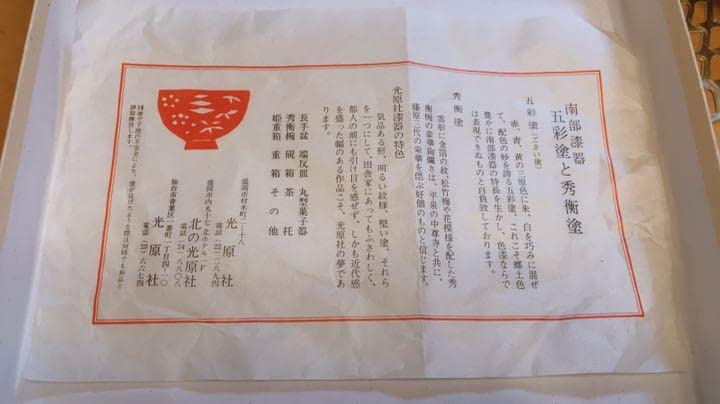 南部漆器
五彩塗と秀衡塗
五彩塗(ごさい塗)
赤、青、黄の三原色に朱、白を巧みに混ぜ
て、配色の妙を誇る五彩塗、これこそ郷土色
豊かに南部漆器の特長を生かし、色漆ならで
は表現できぬものと自負致しております。
秀衡塗
雲形に金箔の紋、松竹梅や花模様を配した秀
衡椀の豪華絢爛さは、平泉の中尊寺と共に、
藤原三代の栄華を偲ぶ好個のものと信じます。
光原社漆器の特色
気品ある形、明るい紋様、堅い塗、それら
を一つにして、田舎家にあってもふさわしく、
都人の前にも引け目を感ぜず、しかも近代感
を盛った幅のある作品こそ、光原社の夢であ
ります。
長手盆 端反皿 丸型菓子器
秀衡椀 硯箱 茶托
姫重箱 重箱 その他
盛岡市材木町二-十八
光原社
電話(22)二八九四
盛岡市内丸十七・北ホテル一F
北の光原社
電話(54)八八〇八
仙台市青葉区一番町一丁目四-一〇
光原社
電話(23)六六七四
御取換致します。